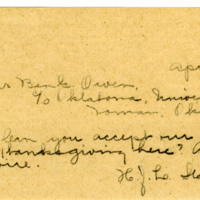 Ap
Ben G. Owen,
c/o Oklahoma, Unive
Norman, Ok
Can you accept our
Thanksgiving here"
wire.
H. J. L.